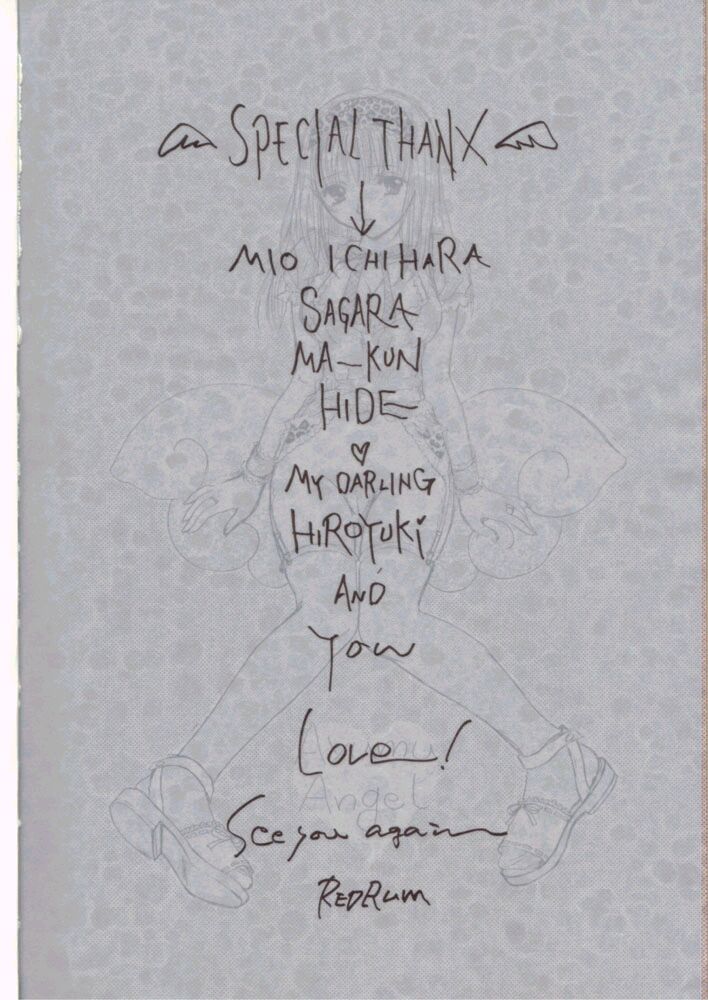 SPECIAL THANX
MIO ICHIHARA
SAGARA
MA-KUN
HIDE
MY DARLING
HIROYUKI
AND
You
Love!
Angel
See you again
REDRUM